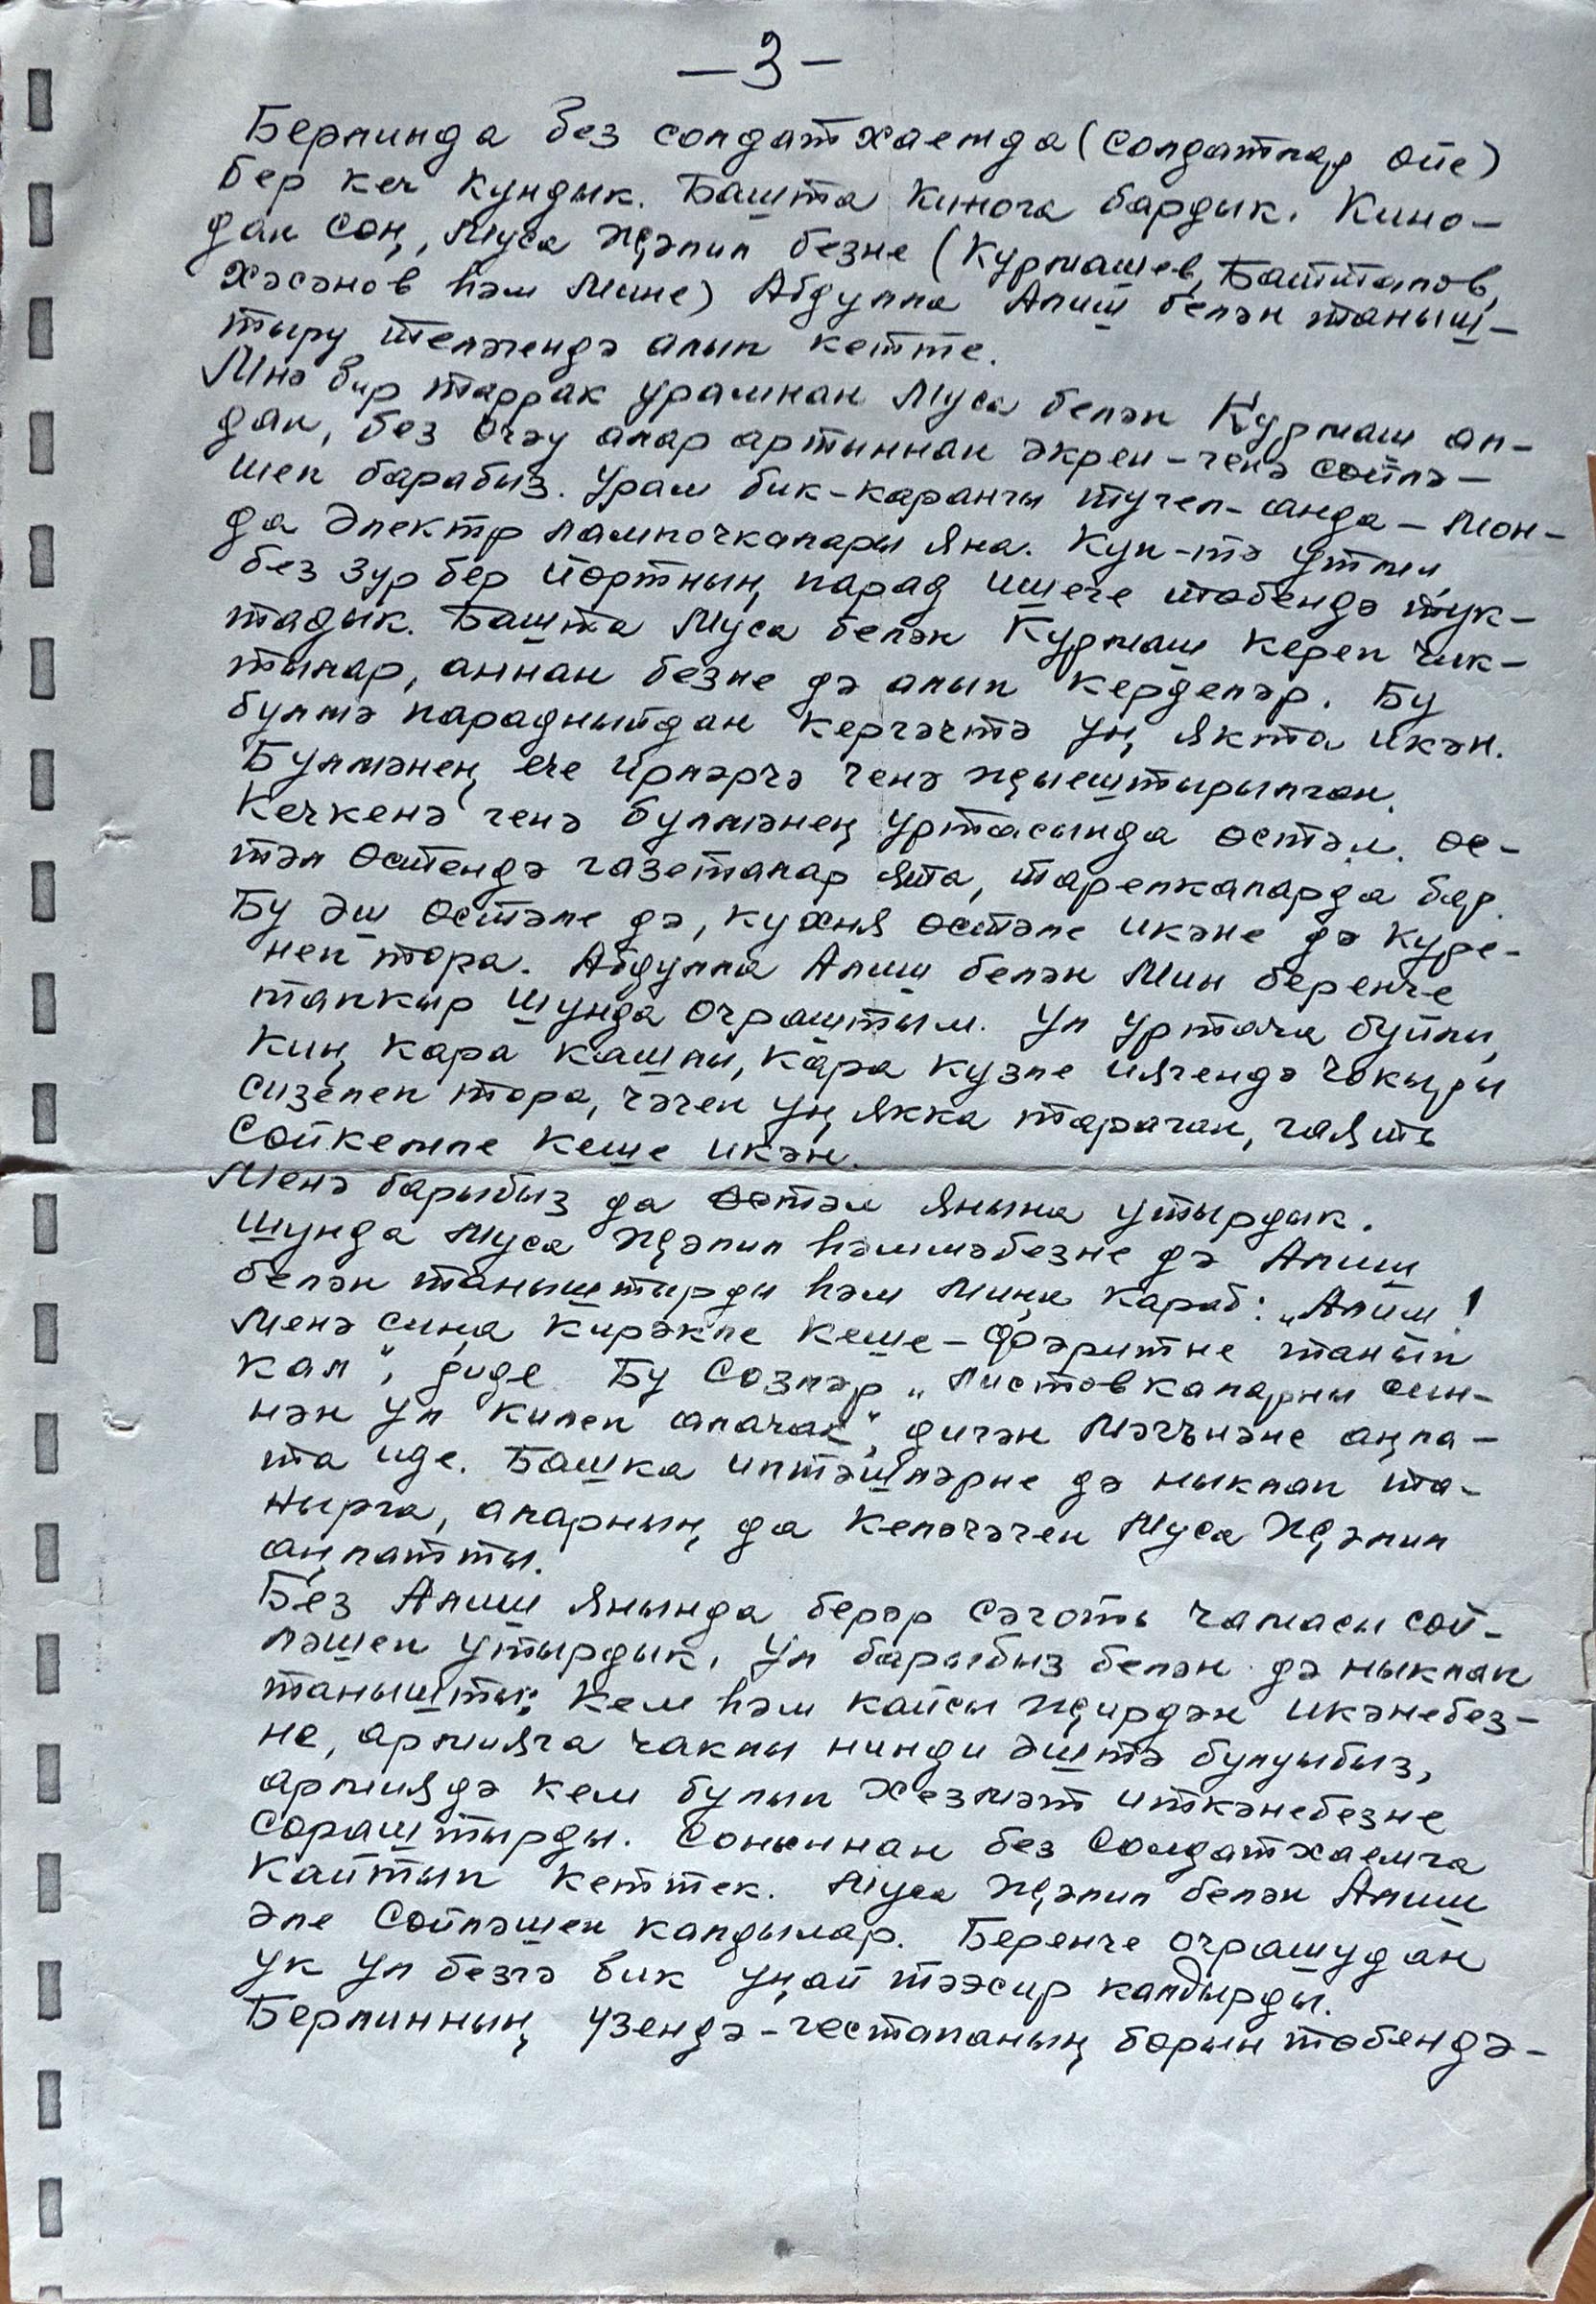 —3—
Берлинда без солдатхаемда (солдатлар өйе)
бер кич кундык. Башта кинога бардык. Кино-
дан соң, Муса Җәлил безне (Курмашев, Батталов,
Хәсәнов һәм Мине) Абдулла Алиш белән таныш-
тыру теләгендә алып китте.
Мнә бир таррак урамнан Муса белән Курмаш ал-
дан, без өчәү алар артыннан әкрен-генә сөйлә-
шеп барабыз. Урам бик-караңгы түгел-анда-мон-
да Электр лампочкалары яна. Күп-тә үтми,
без зур бер йортның парад ишеге төбендә тук-
тадык. Башта Муса белән Курмаш кереп чик-
тылар, аннан безне дә алып керделәр. Бу
бүлмә парадныйдан кергәчтә уң якта икән.
Бүлмәнең эче ирләрчә генә җыештырылган.
Кечкенә генә бүлмәнең уртасында өстәл. Өс-
тәл өстендә газеталар ята, тарелкаларда бар.
Бу эш өстәле дә, кухня өстәле икәне дә күре-
неп тора. Абдулла Алиш белән Мин беренче
тапкыр шунда очраштым. Ул уртача буйлы,
киң кара кашлы, кара күзле иягендә чокыры
сизелеп тора, чәчен уң якка тараган, гаять
сөйкемле кеше икән.
Менә барыбыз да өстәл янына утырдык.
Шунда Муса Җәлил һәммәбезне дә Алиш
белән таныштырды һәм Миңа караб: „Алиш!
Менә сиңа кирәкле кеше-Фәритне танып
кал", диде Бу сөзләр „листовкаларны син-
нән ул килеп алачак", дигән мәгънәне аңла-
та иде. Башка иптәшләрне дә ныклап та-
нырга, аларның да киләчәген Муса Җәлил
аңлатты.
Без Алиш янында берәр сәгать чамасы сөй-
ләшеп утырдык. Ул барыбыз белән дә ныклап
танышты: Кем һәм кайсы җирдән икәнебез-
не, армияга чаклы нинди эштә булуыбыз,
армиядә кем булып хезмәт иткәнебезне
сораштырды. Соңыннан без солдатхаемга
кайтып киттек. Муса Җәлил белән Алиш
әле сөйләшеп калдылар. Беренче очрашудан
ук ул безгә бик уңай тәэсир калдырды.
Берлинның үзендә-гестапоның борын төбендә-